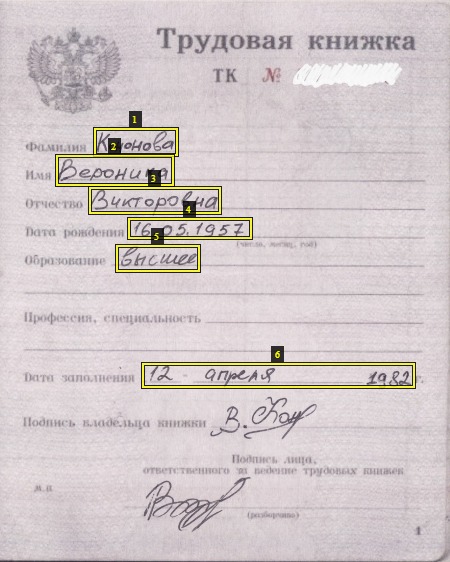 Трудовая книжка
ТК №
1
Фамилия
2
Имя Вероника
3
Отчество Викторовна
4
Дата рождения 16.05.1957
(число, месяц, год)
5
Образование высшее
Профессия, специальность
6
Дата заполнения 12 - апреля 1982 г.
Подпись владельца книжки
Подпись лица,
ответственного за ведение трудовых книжек
м.п.
(разборчиво)
1